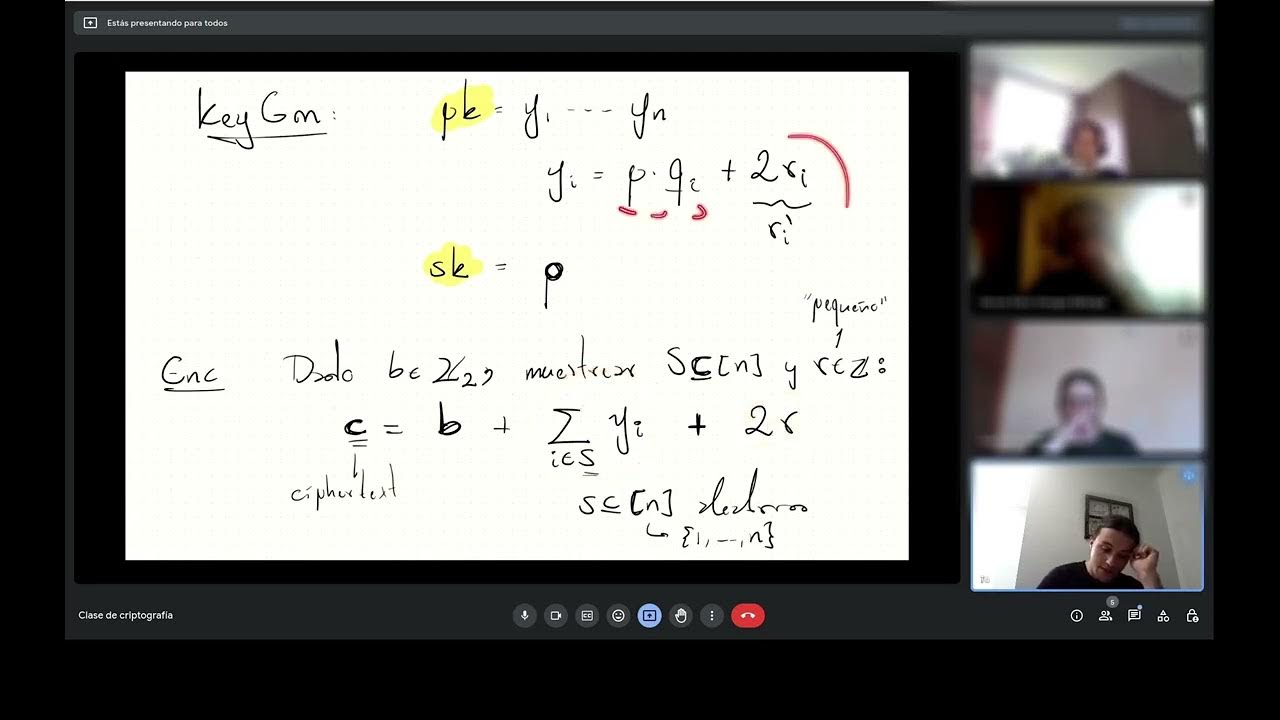 Estás presentando para todos
KeyGen: pk = y₁ ---- yn
yᵢ = p · qᵢ + 2rᵢ
rᵢ'
sk = p
"pequeño"
Enc Dado b ∈ ℤ₂, muestrear S ⊆ [n] y r ∈ ℤ:
c = b + ∑ yᵢ + 2r
i ∈ S
ciphertext
S ⊆ [n] aleatorio
↳ {1, ..., n}
Tú
Clase de criptografía
5